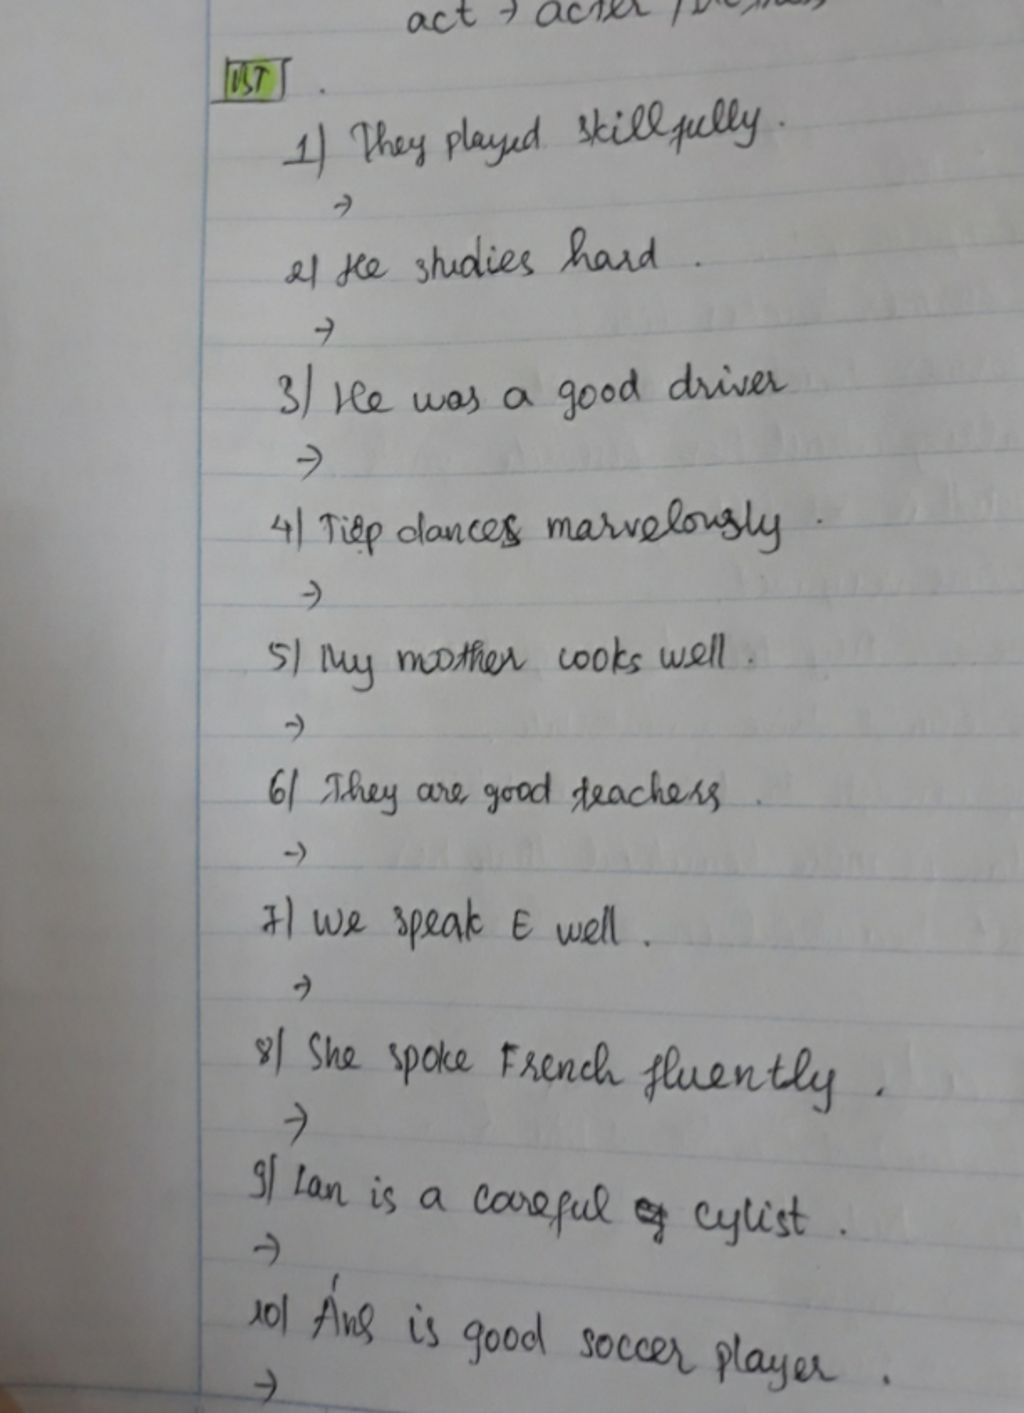 act → actor /
VBT .
1) They played skillfully.
→
2) He studies hard.
→
3) He was a good driver
→
4) Tiệp dances marvelously.
→
5) My mother cooks well.
→
6) They are good teachers.
→
7) We speak E well.
→
8) She spoke French fluently.
→
9) Lan is a careful cylist.
→
10) Ánh is good soccer player.
→